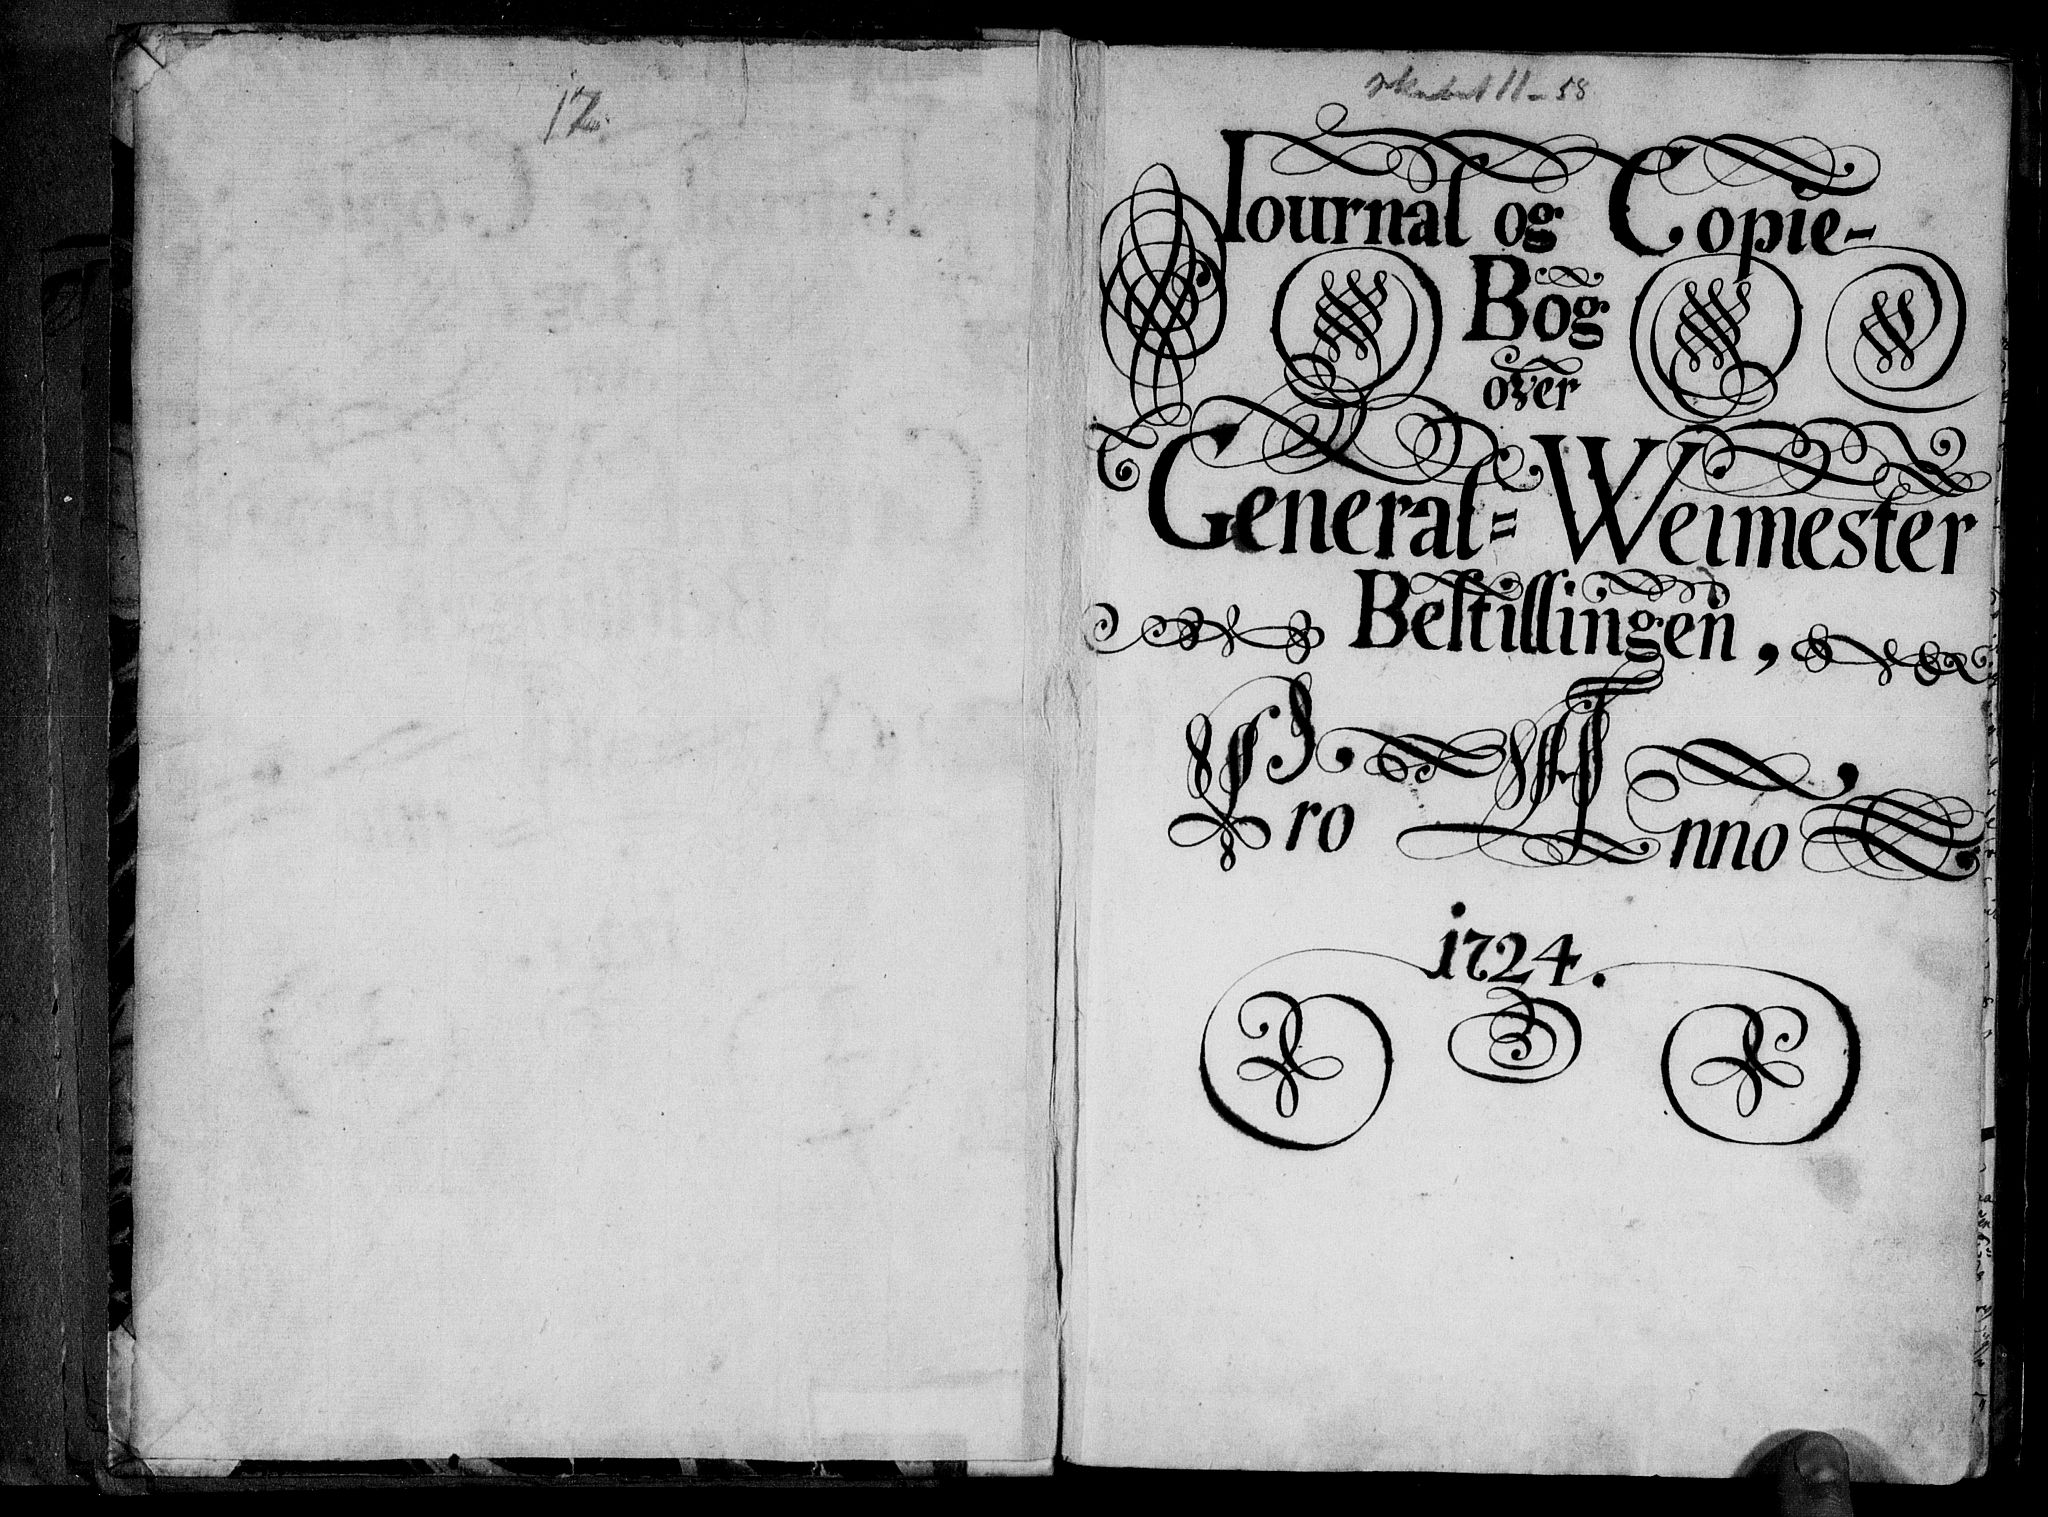 12
11-58
Journal og Copie-
Bog
over
General= Weimester
Bestillingen,
Pro Anno
1724.